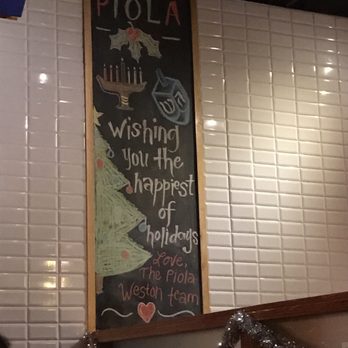 PIOLA
wishing
you the
happiest
of
holidays
Love,
The Piola
Weston team